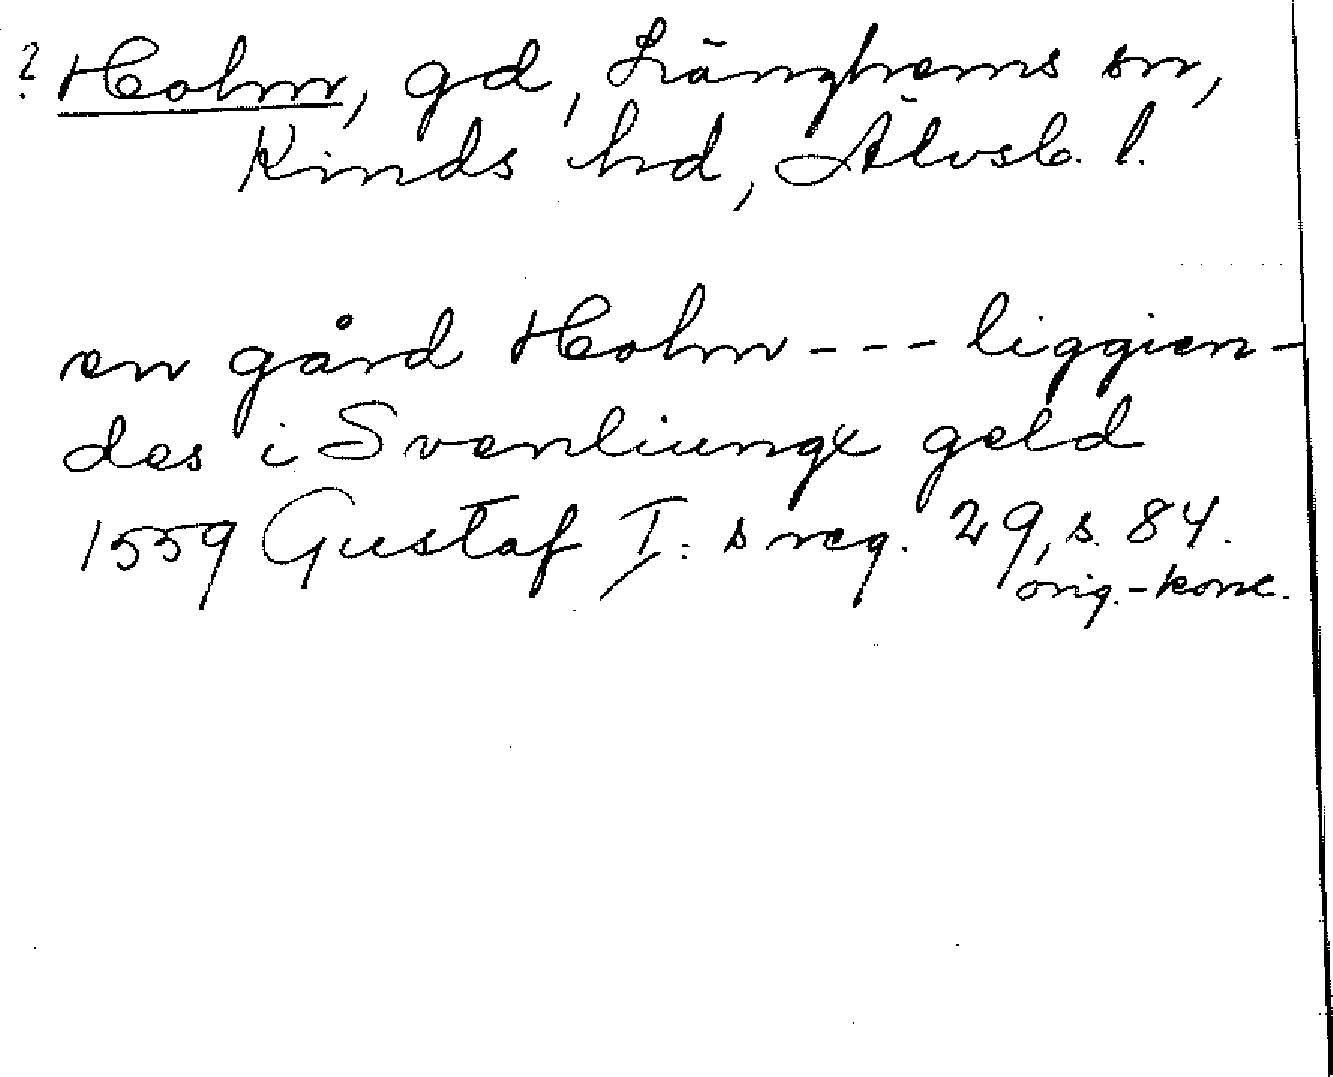 ? Holm, gd, Länghems sn,
Kinds hd, Älvsb. l.
en gård Holm --- liggien-
des i Svenliunge geld
1559 Gustaf I:s reg. 29, s. 84.
orig.-konc.